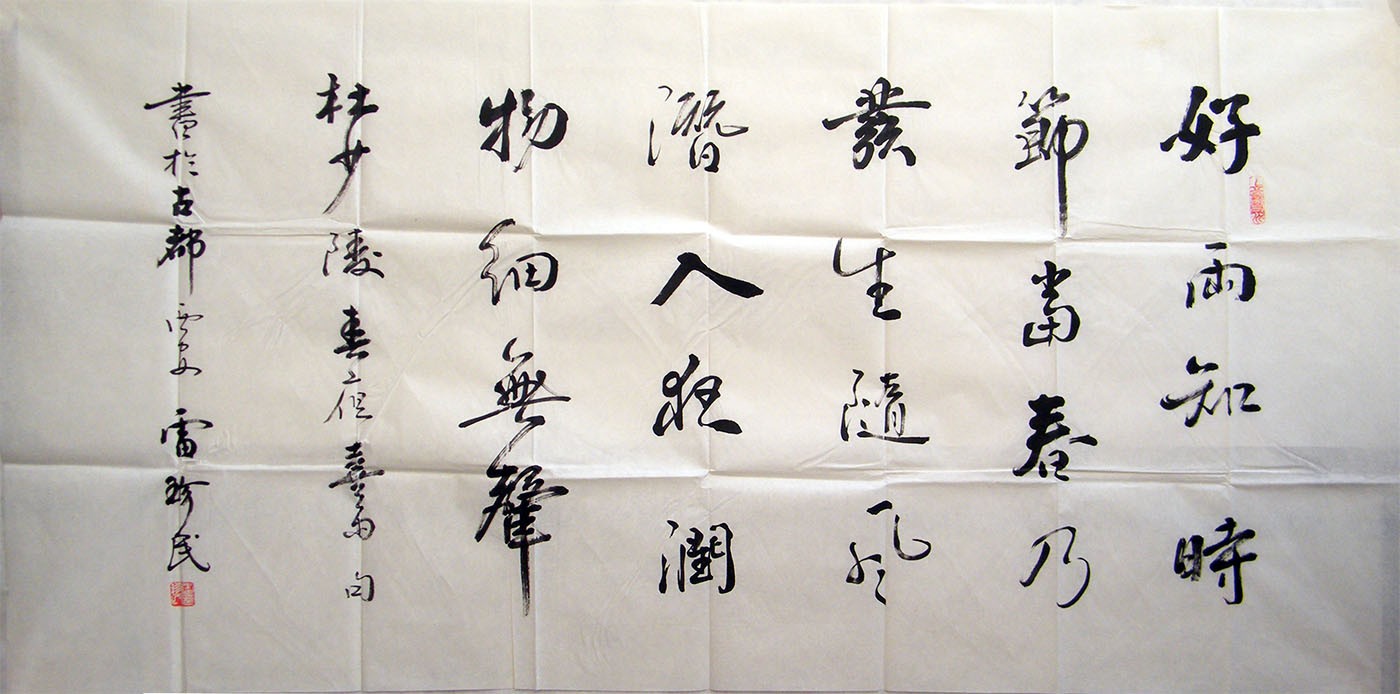 好雨知時
節當春乃
發生隨風
潛入夜潤
物細無聲
杜少陵春夜喜雨句
書於古都西安 雷珍民